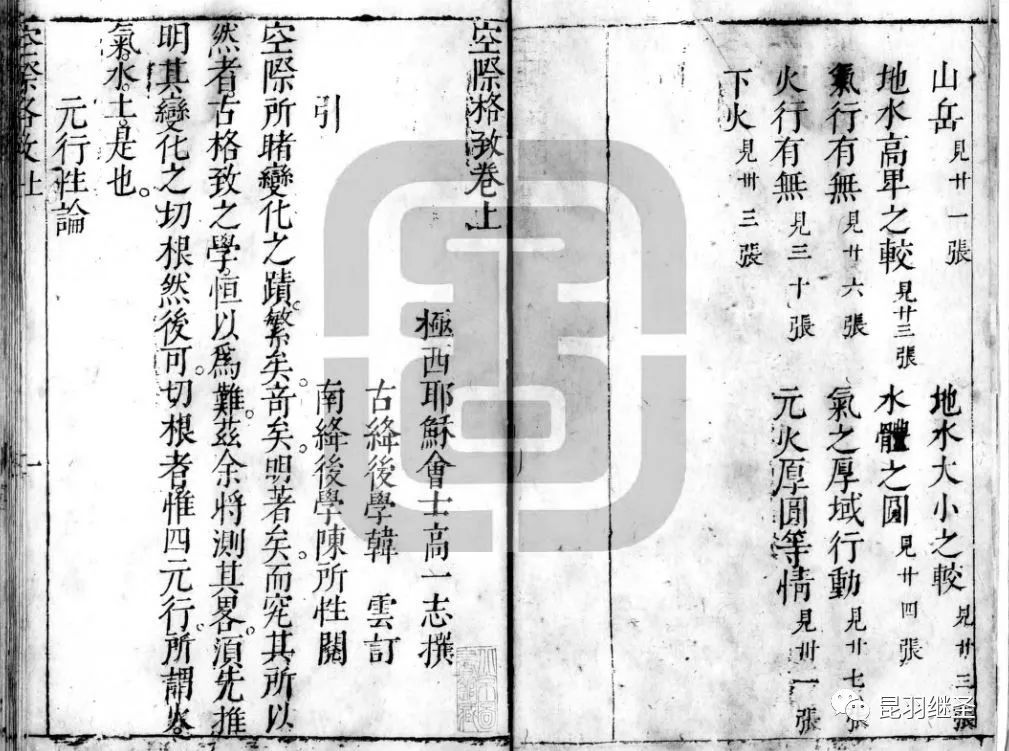 山岳 見廿一張
地水大小之較 見廿三張
地水高卑之較 見廿三張
水體之圓 見廿四張
氣行有無 見廿六張
氣之厚域行動 見廿七張
火行有無 見三十張
元火厚圓等情 見卅一張
下火 見卅三張
空際格致卷上
極西耶穌會士高一志撰
古絳後學韓 雲訂
南絳後學陳所性閱
引
空際所睹變化之蹟。繁矣。竒矣。明著矣。而究其所以
然者。古格致之學。恒以爲難。茲余將測其畧。須先推
明其變化之切根。然後可。切根者惟四元行。所謂火。
氣。水。土。是也。
元行性論
空際格致上
一
昆羽继圣